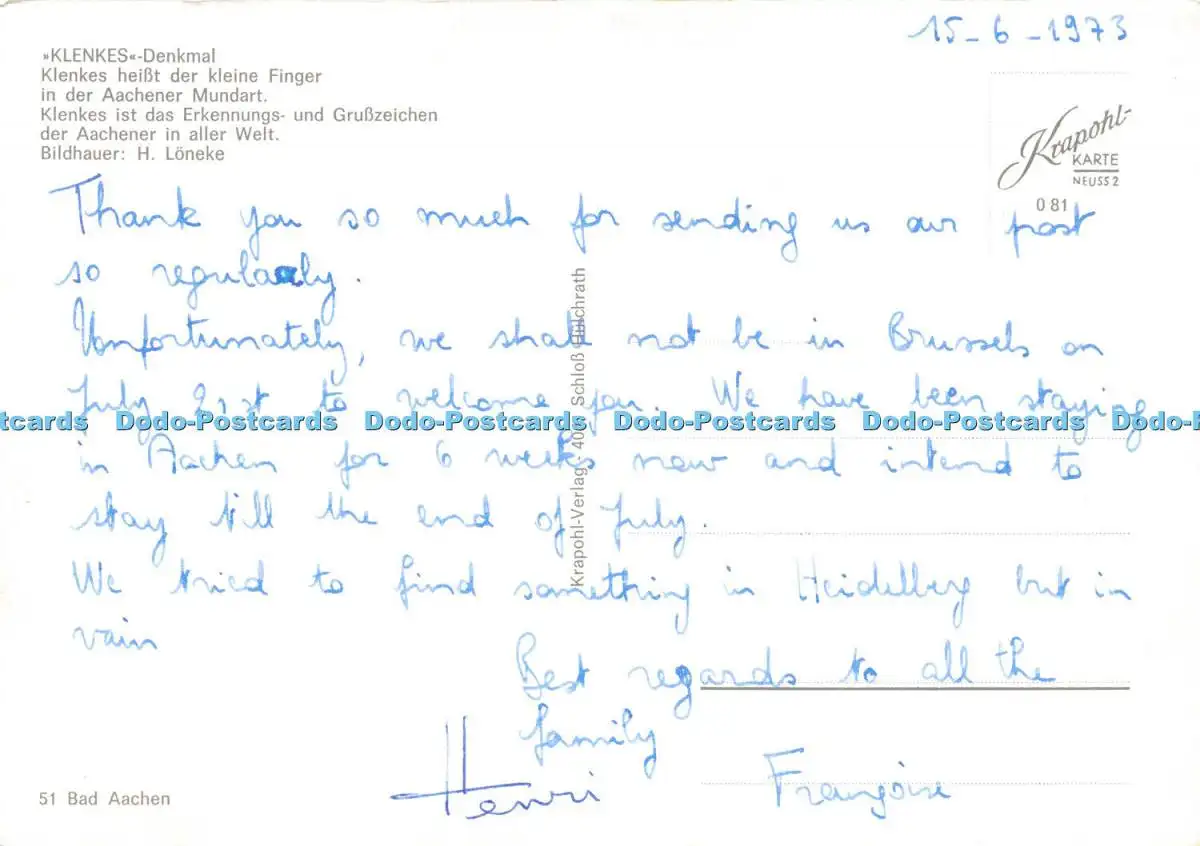 15-6-1973
»KLENKES«-Denkmal
Klenkes heißt der kleine Finger
in der Aachener Mundart.
Klenkes ist das Erkennungs- und Grußzeichen
der Aachener in aller Welt.
Bildhauer: H. Löneke
Krapohl-
KARTE
NEUSS 2
O 81
Thank you so much for sending us our post
so regularly.
Unfortunately, we shall not be in Brussels on
July 21st to welcome you. We have been staying
in Aachen for 6 weeks now and intend to
stay till the end of July.
We tried to find something in Heidelberg but in
vain
Best regards to all the
family
Henri Françoise
Krapohl-Verlag Schloß
51 Bad Aachen
Dodo-Postcards Dodo-Postcards Dodo-Postcards Dodo-Postcards